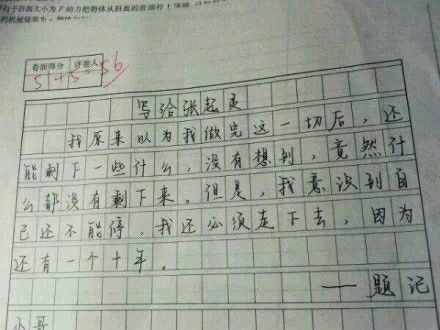 行于斜面大小为F的力把物体从斜面的底部拉上顶端
的机械效率为
卷面得分 评卷人
51+5=56
写给张起灵
我原来以为我做完这一切后，还
能剩下一些什么，没有想到，竟然什
么都没有剩下来。但是，我意识到自
己还不能停，我还必须走下去，因为
还有一个十年。
——题记
小哥